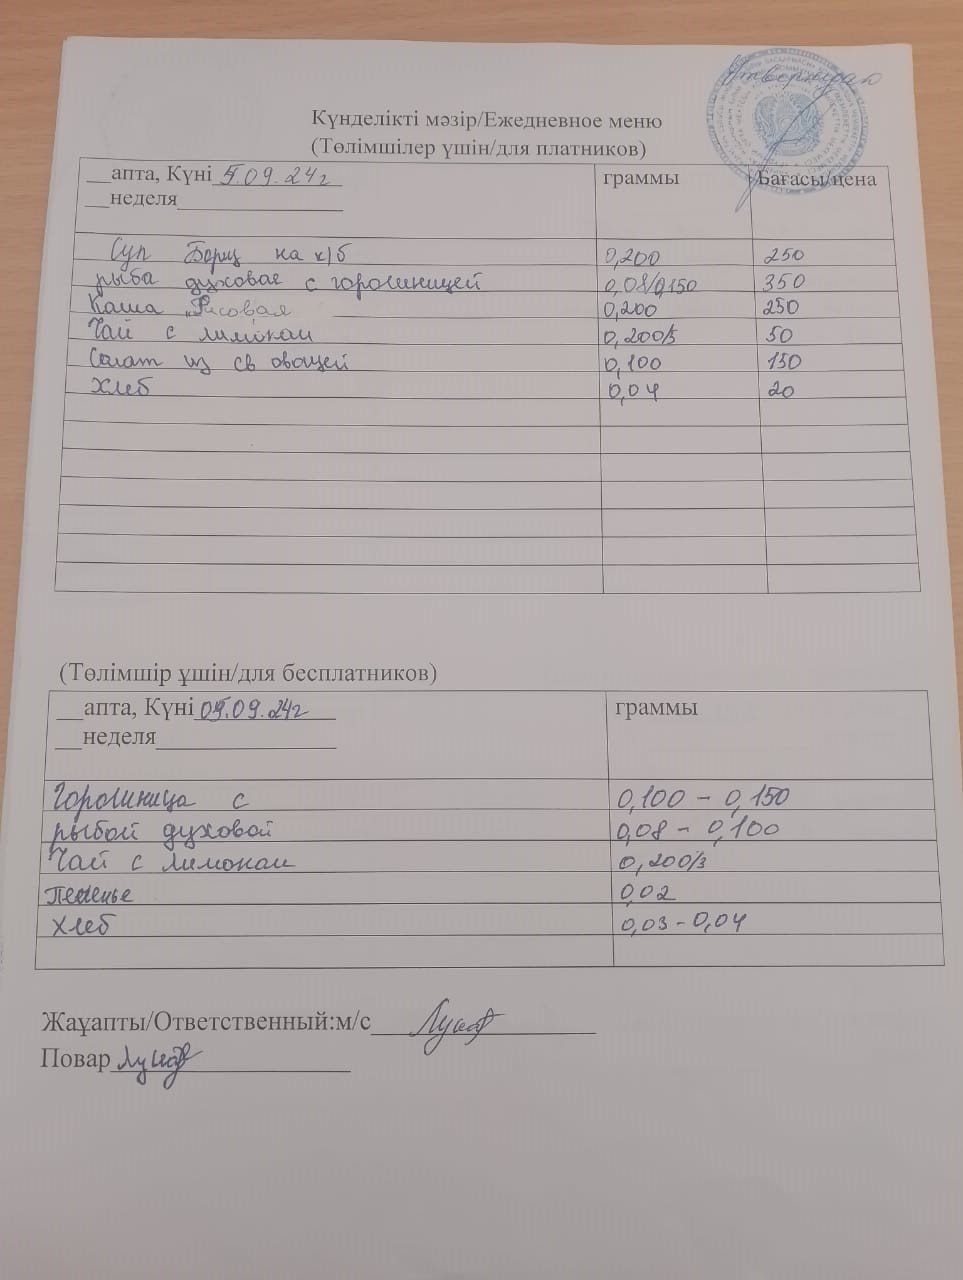 Утверждаю
Күнделікті мәзір/Ежедневное меню
(Төлімшілер үшін/для платников)
__апта, Күні 5.09.24г граммы Бағасы/цена
__неделя____________
Суп Борщ на к/б 0,200 250
рыба духовая с горошницей 0,08/0,150 350
Каша "Рисовая 0,200 250
Чай с лимоном 0,200/5 50
Салат из св овощей 0,100 150
Хлеб 0,04 20
(Төлімшір ұшін/для бесплатников)
__апта, Күні 05.09.24г граммы
__неделя____________
Горошница с 0,100 - 0,150
рыбой духовой 0,08 - 0,100
Чай с лимоном 0,200/3
Печенье 0,02
Хлеб 0,03 - 0,04
Жаұапты/Ответственный:м/с
Повар